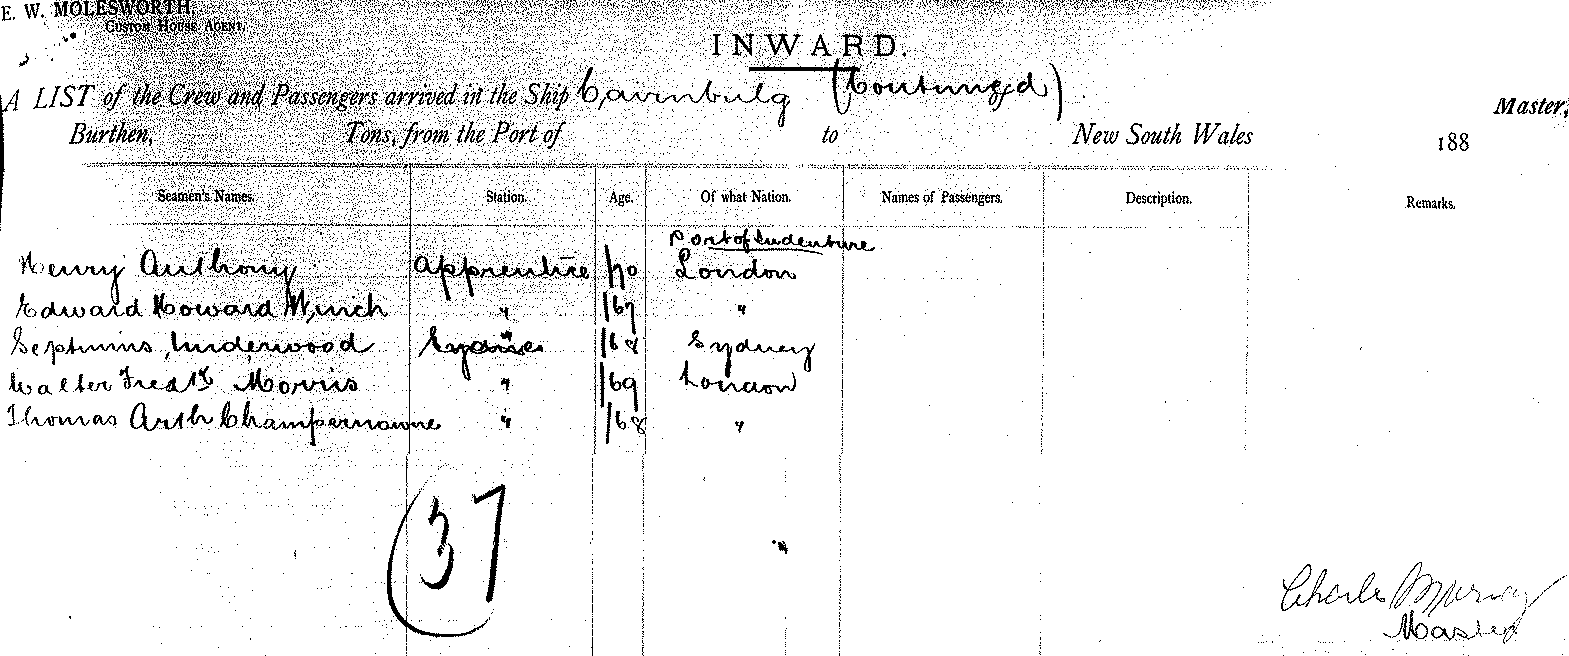 E. W. MOLESWORTH,
CUSTOM HOUSE AGENT.
INWARD.
A LIST of the Crew and Passengers arrived in the Ship Cairnbulg (Continued) Master,
Burthen, Tons, from the Port of to New South Wales 188
Seamen's Names. Station. Age. Of what Nation. Names of Passengers. Description. Remarks.
Port of Indenture
Henry Anthony Apprentice /70 London
Edward Howard Winch " /67 "
Septimus Underwood " /68 Sydney
Walter Fredk Morris " /69 London
Thomas Arth Champernowne " /68 "
37
Charles Murray
Master